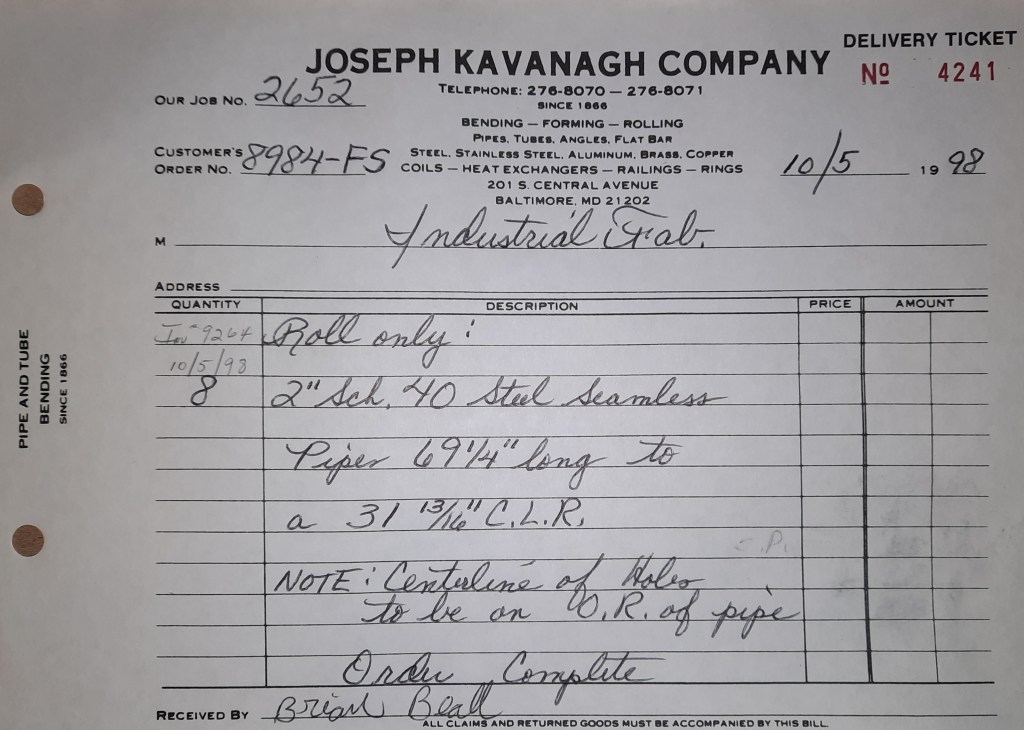 DELIVERY TICKET
JOSEPH KAVANAGH COMPANY
Nº 4241
OUR JOB NO. 2652
TELEPHONE: 276-8070 — 276-8071
SINCE 1866
BENDING — FORMING — ROLLING
PIPES, TUBES, ANGLES, FLAT BAR
CUSTOMER'S ORDER NO. 8984-FS
STEEL, STAINLESS STEEL, ALUMINUM, BRASS, COPPER
COILS — HEAT EXCHANGERS — RAILINGS — RINGS
10/5 19 98
201 S. CENTRAL AVENUE
BALTIMORE, MD 21202
M Industrial Fab.
ADDRESS
QUANTITY DESCRIPTION PRICE AMOUNT
Inv # 9264 Roll only:
10/5/98
8 2" Sch. 40 Steel Seamless
Pipes 69 1/4" long to
a 31 13/16" C.L.R.
NOTE: Centerline of Holes
to be on O.R. of pipe
Order Complete
RECEIVED BY Brian Beall
ALL CLAIMS AND RETURNED GOODS MUST BE ACCOMPANIED BY THIS BILL
PIPE AND TUBE
BENDING
SINCE 1866